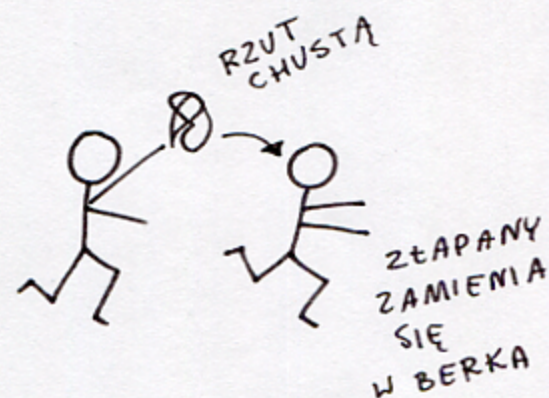 RZUT
CHUSTĄ
ZŁAPANY
ZAMIENIA
SIĘ
W BERKA